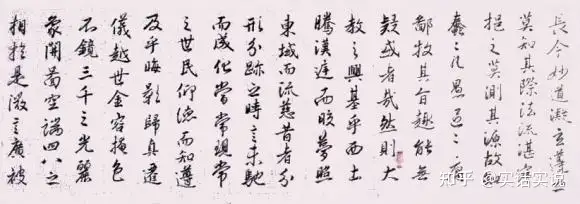 長今妙道凝玄遵之
莫知其際法流湛寂
挹之莫測其源故知
蠢〻凡愚區〻庸
鄙投其旨趣能無
疑惑者哉然則大
教之興基乎西土
騰漢庭而皎夢照
東域而流慈昔者分
形分跡之時言未馳
而成化當常現常
之世民仰德而知遵
及乎晦影歸真遷
儀越世金容掩色
不鏡三千之光麗
象開圖空端四八之
相於是微言廣被
知乎 @实话实说